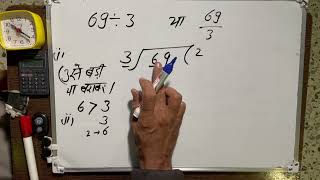 69÷3 या 69/3
(i)
3)69(2
(3 से बड़ी
या बराबर)
6>3
(ii) 3
2→6